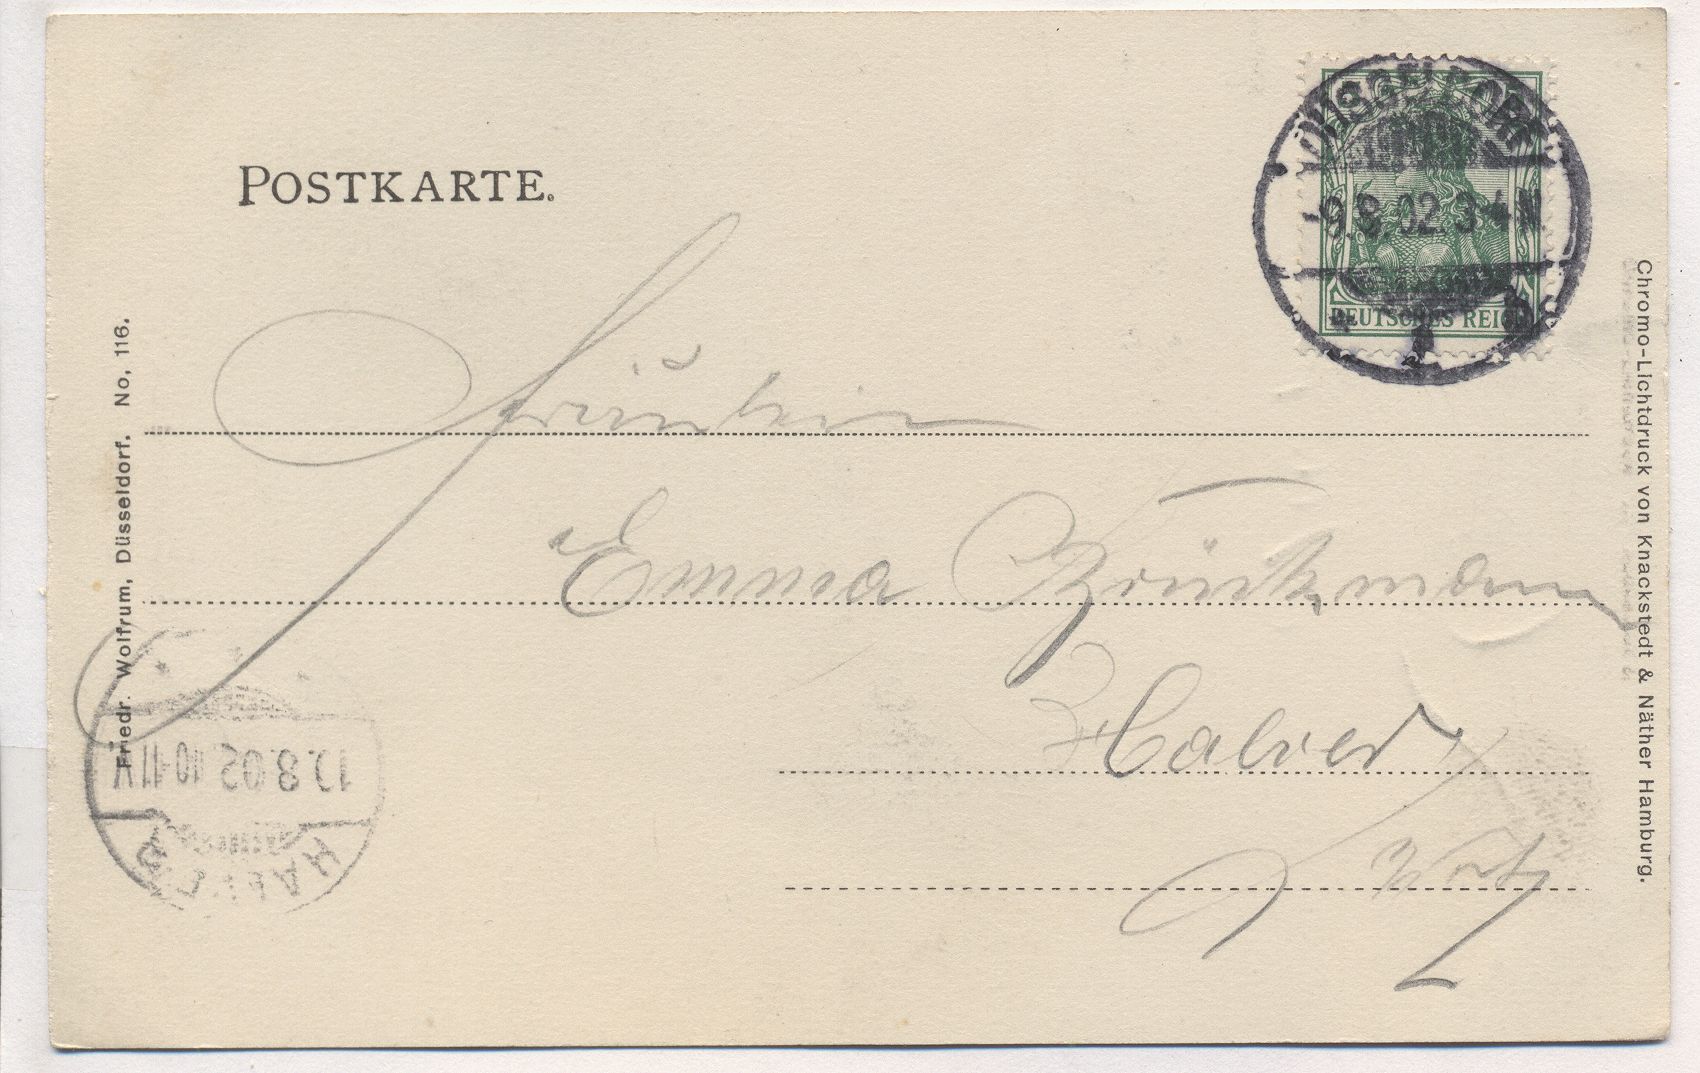 POSTKARTE.
DÜSSELDORF
9.8.02. 3-4 N.
1
DEUTSCHES REICH
Fräulein
Emma Brückmann
Halver
i/ Westf
Friedr. Wolfrum, Düsseldorf. No. 116.
Chromo-Lichtdruck von Knackstedt & Näther Hamburg.
HALVER
10.8.02. 10-11V